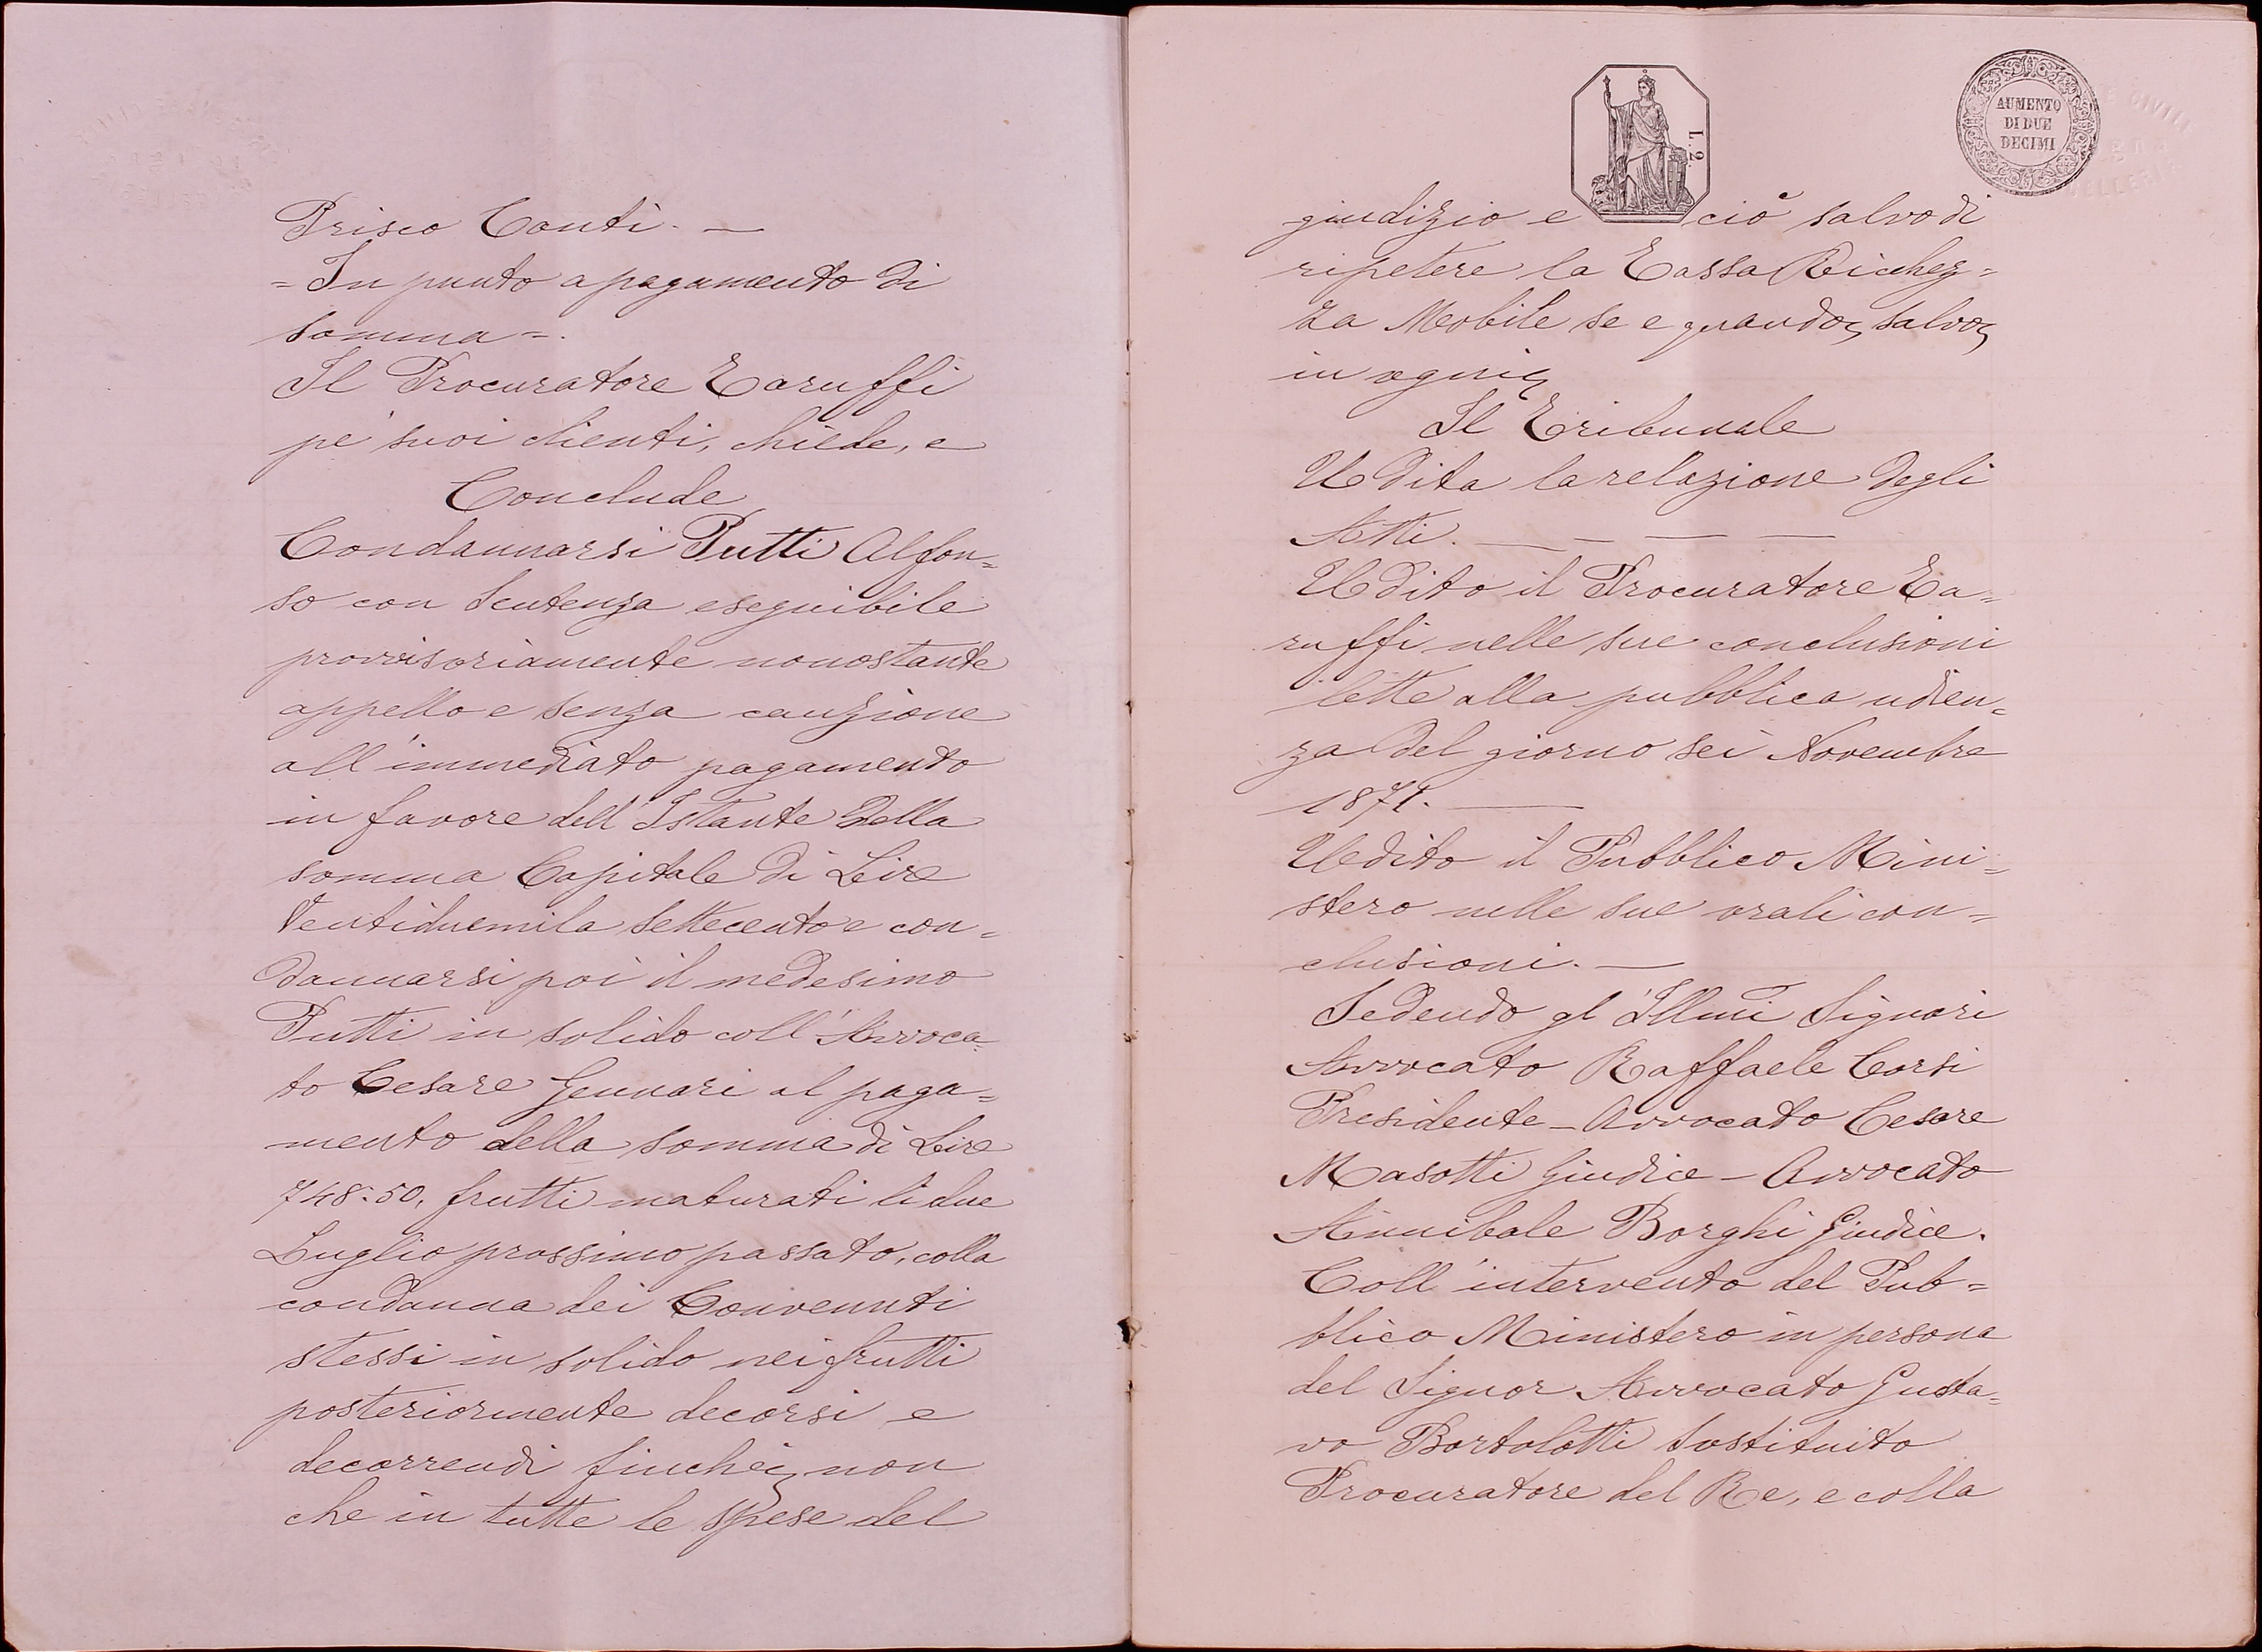 Prisco Conti. —
= In punto a pagamento di
somma =.
Il Procuratore Taruffi
pe' suoi clienti, chiede, e
Conclude
Condannarsi Putti Alfon=
so con Sentenza eseguibile
provvisoriamente nonostante
appello e senza cauzione
all'immediato pagamento
in favore dell'Istante della
somma Capitale di Lire
Ventiduemila settecento e con=
dannarsi poi il medesimo
Putti in solido coll'Avvoca=
to Cesare Gennari al paga=
mento della somma di Lire
748:50, frutti maturati li due
Luglio prossimo passato, colla
condanna dei Convenuti
stessi in solido nei frutti
posteriormente decorsi e
decorrendi finchè, non
che in tutte le spese del
L. 2.
AUMENTO
DI DUE
DECIMI
giudizio e ciò salvo di
ripetere la Tassa Ricchez=
za Mobile se e quando, salvo,
in ogni
Il Tribunale
Udita la relazione degli
Atti. — — — —
Udito il Procuratore Ta=
ruffi nelle sue conclusioni
lette alla pubblica udien=
za del giorno sei Novembre
1871. —
Udito il Pubblico Mini=
stero nelle sue orali con=
clusioni. —
Sedendo gl'Illmi Signori
Avvocato Raffaele Corsi
Presidente - Avvocato Cesare
Masotti Giudice - Avvocato
Annibale Borghi Giudice.
Coll'intervento del Pub=
blico Ministero in persona
del Signor Avvocato Gusta=
vo Bortolotti Sostituito
Procuratore del Re, e colla